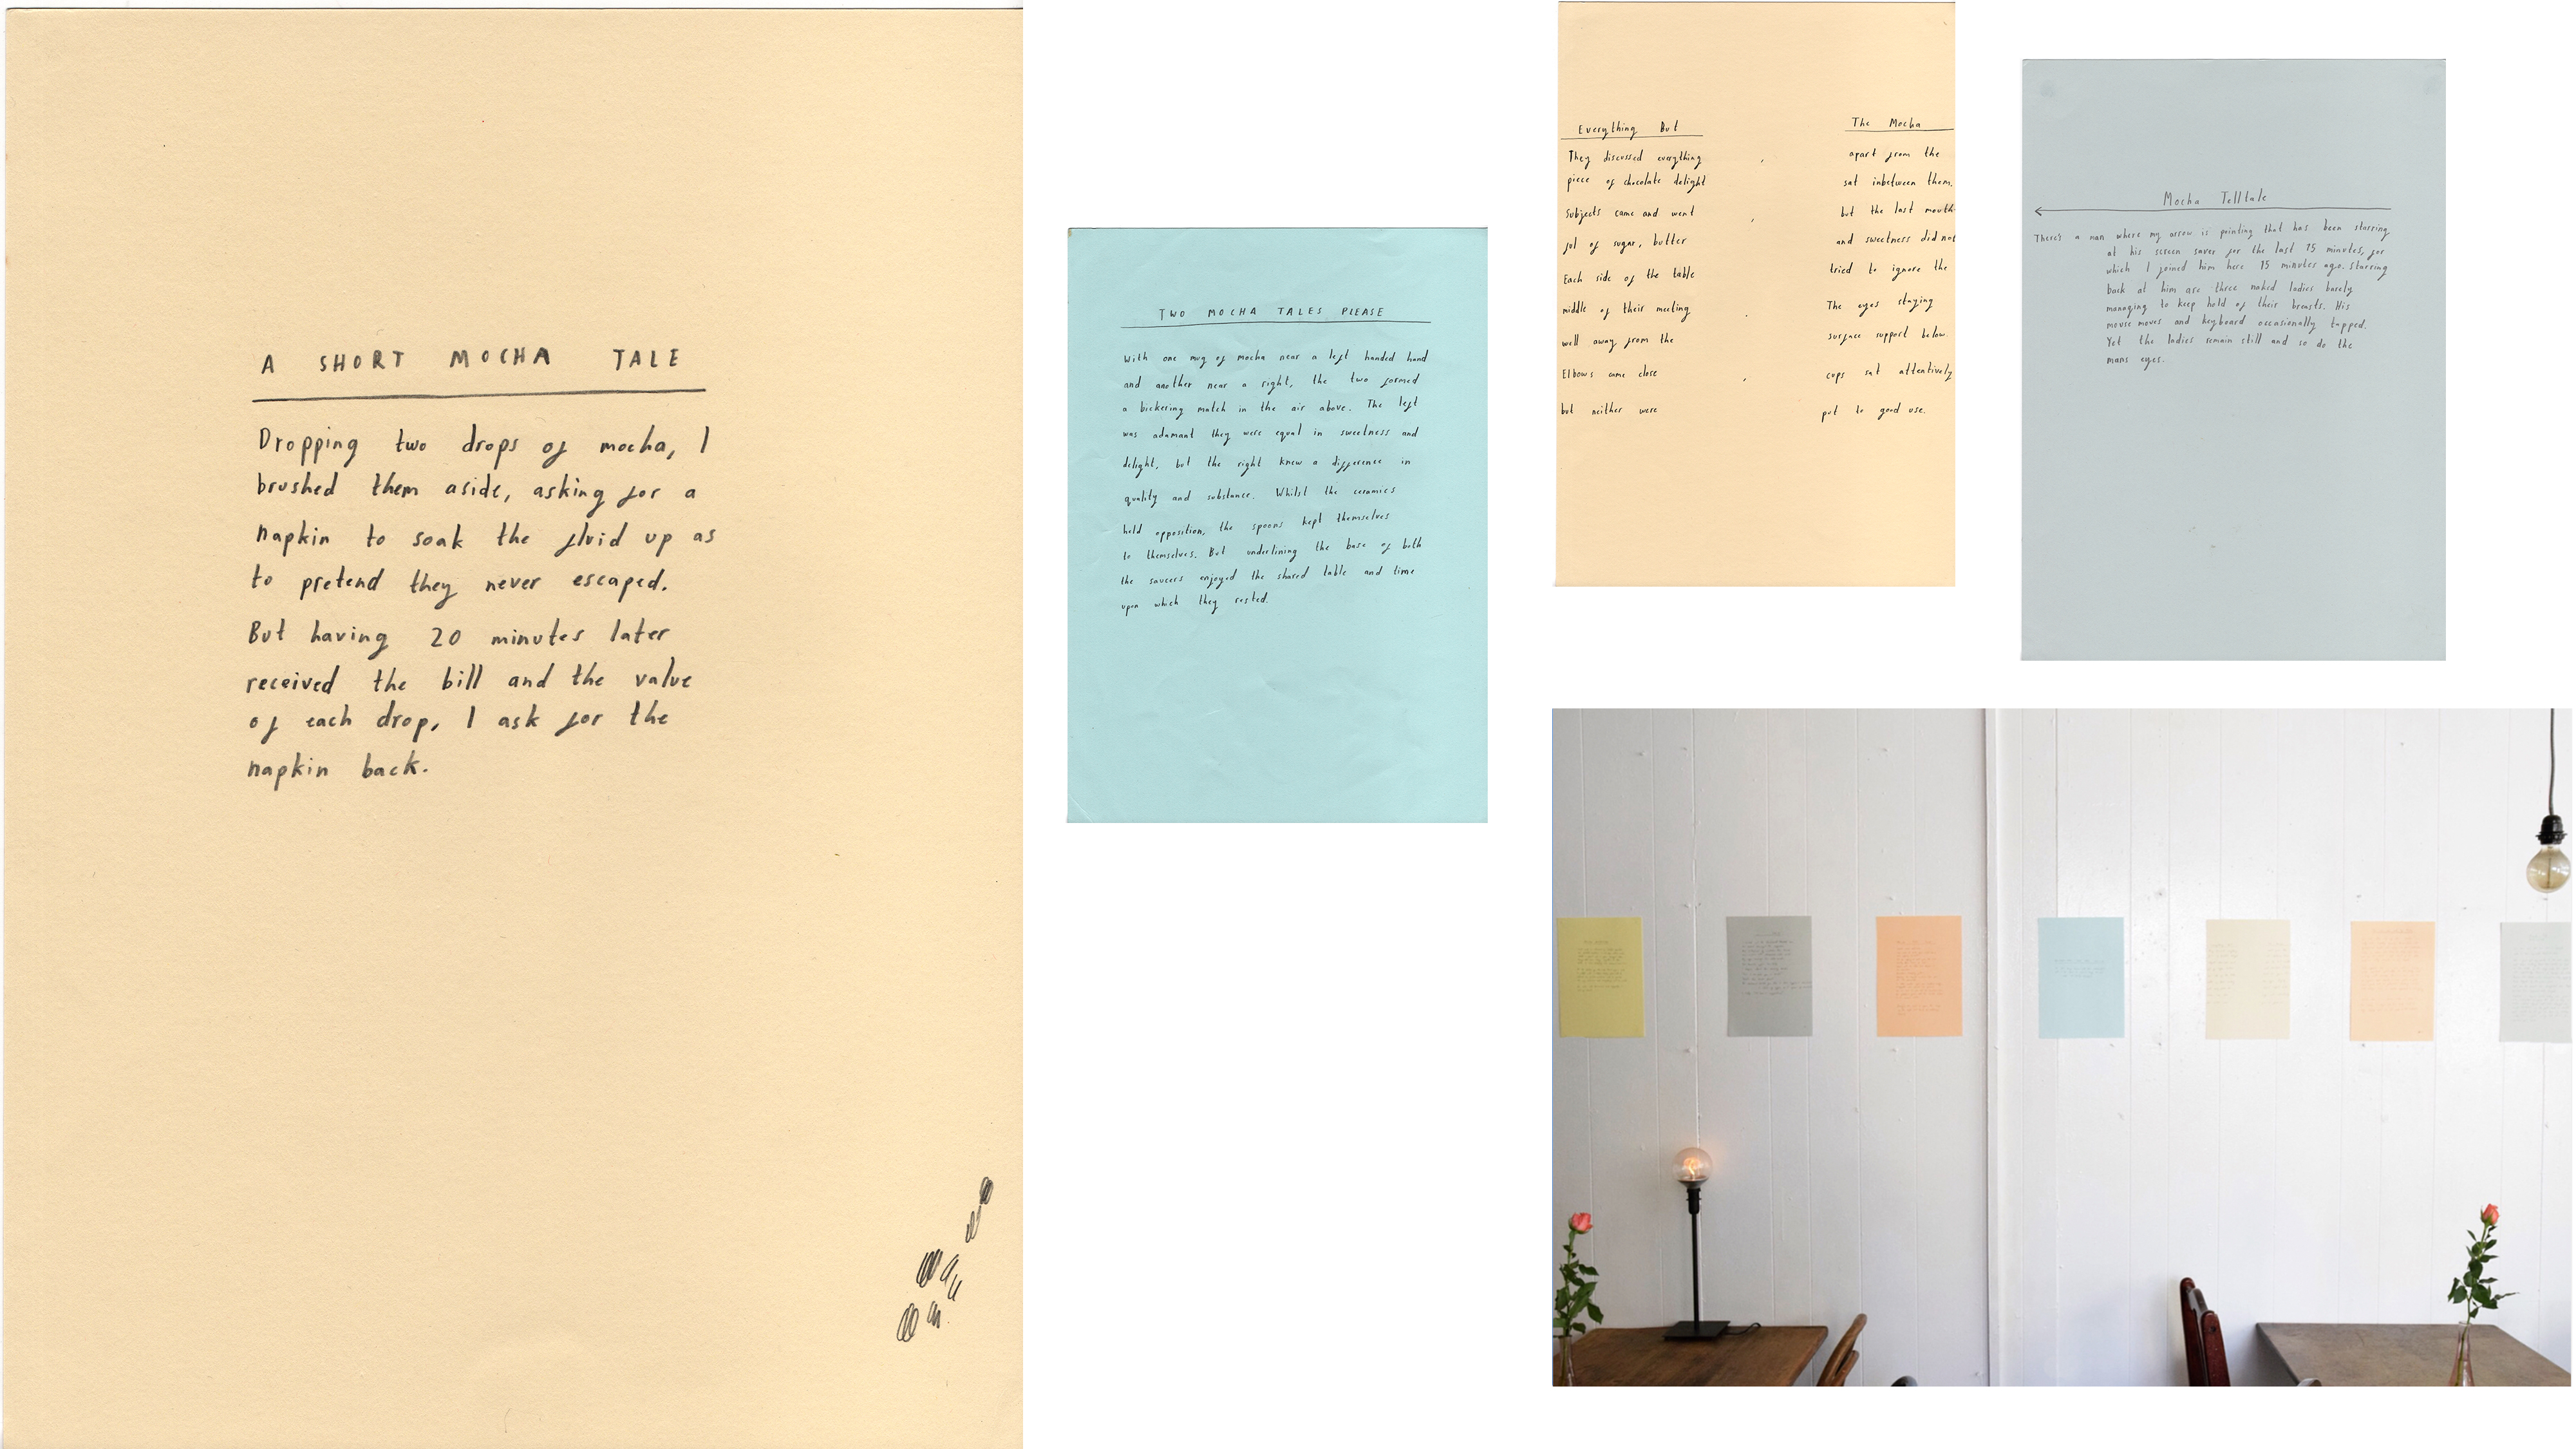 A SHORT MOCHA TALE
Dropping two drops of mocha, I
brushed them aside, asking for a
napkin to soak the fluid up as
to pretend they never escaped.
But having 20 minutes later
received the bill and the value
of each drop, I ask for the
napkin back.
TWO MOCHA TALES PLEASE
With one mug of mocha near a left handed hand
and another near a right, the two formed
a bickering match in the air above. The left
was adamant they were equal in sweetness and
delight, but the right knew a difference in
quality and substance. Whilst the ceramics
held opposition, the spoons kept themselves
to themselves. But underlining the base of both
the saucers enjoyed the shared table and time
upon which they rested.
Everything But The Mocha
They discussed everything apart from the
piece of chocolate delight sat inbetween them.
Subjects came and went but the last mouth
ful of sugar, butter and sweetness did not
Each side of the table tried to ignore the
middle of their meeting The eyes staying
well away from the surface support below.
Elbows came close cups sat attentively
but neither were put to good use.
Mocha Telltale
There's a man where my arrow is pointing that has been starring
at his screen saver for the last 15 minutes, for
which I joined him here 15 minutes ago. Starring
back at him are three naked ladies barely
managing to keep hold of their breasts. His
mouse moves and keyboard occasionally tapped.
Yet the ladies remain still and so do the
mans eyes.